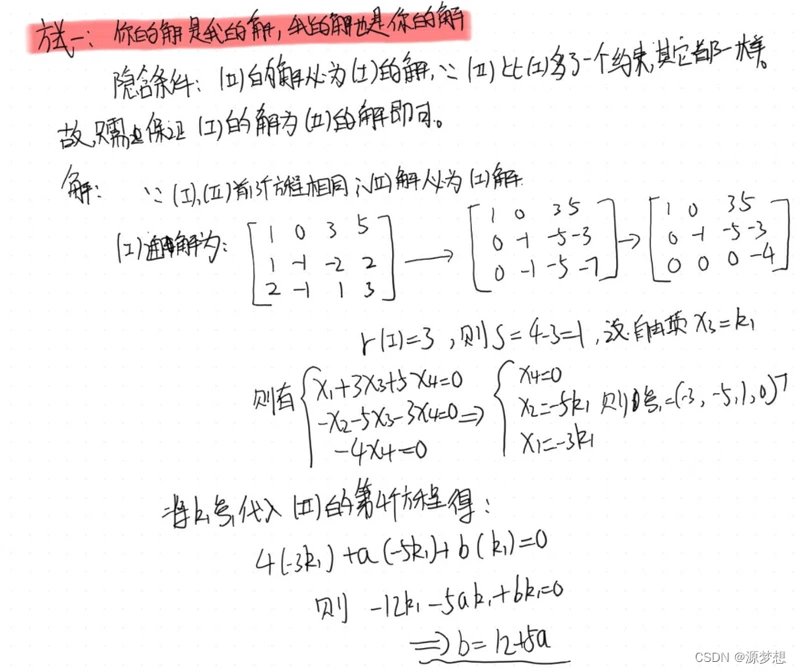 方式一：你的解是我的解，我的解也是你的解
隐含条件：(II)的解必为(I)的解，∵(II)比(I)多了一个约束，其它都一样。
故，只需保证(I)的解为(II)的解即可。
解：∵(I),(II)前3个方程相同∴(II)解必为(I)解
(I)通解为：
[1 0 3 5 → [1 0 3 5 → [1 0 3 5
1 -1 -2 2 0 -1 -5 -3 0 -1 -5 -3
2 -1 1 3] 0 -1 -5 -7] 0 0 0 -4]
r(I)=3，则S=4-3=1，设自由项x3=k1
则有 {x1+3x3+5x4=0 {x4=0
-x2-5x3-3x4=0 ⇒ x2=-5k1 则ξ1=(-3,-5,1,0)T
-4x4=0 x1=-3k1
将k1ξ1代入(II)的第4个方程得：
4(-3k1)+a(-5k1)+b(k1)=0
则 -12k1-5ak1+bk1=0
⇒b=12+5a
CSDN @源梦想